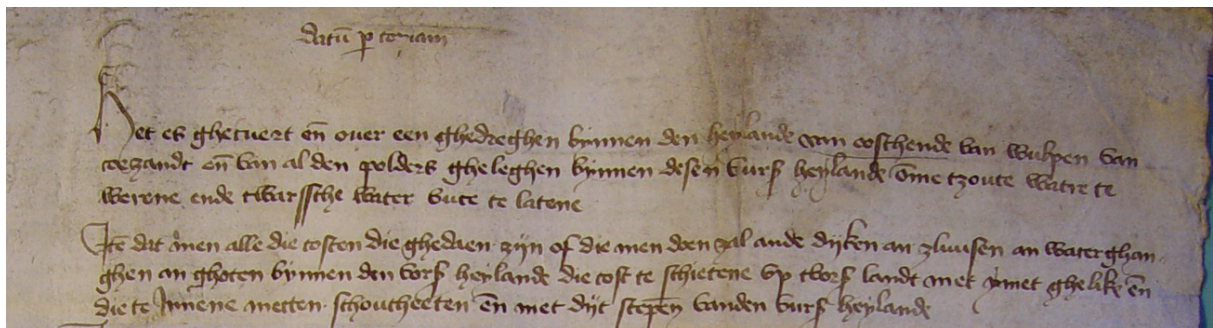 datū p̄ copiam
Het es ghecuert en̄ ouer een ghedreghen bynnen den heylande van oosthende van wulpen van
coezandt en̄ van al den polders gheleghen bynnen desen vurs heylande ōme tzoute watre te
werene ende twarssche water vute te latene
Itē dat men alle die costen die ghedaen zijn of die men doen zal ande dijken an zluusen an waterghan
ghen an ghoten bynnen den vors heylande die cost te schietene vp tvors landt met ymet ghelike en̄
die te Innene metten schoutheeten en̄ met dijc scepen vanden vurs heylande